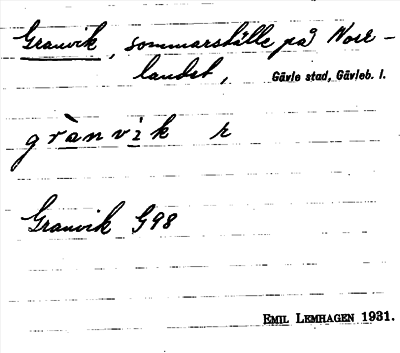 Granvik, sommarställe på Norr-
landet, Gävle stad, Gävleb. l.
grànvìk r
Granvik G98
EMIL LEMHAGEN 1931.